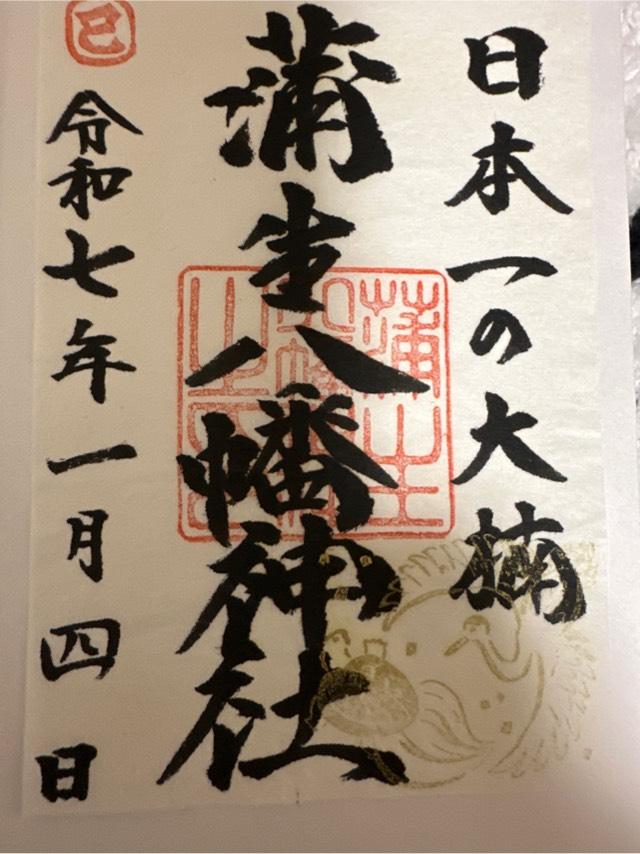 日本一の大楠
蒲生八幡神社
令和七年一月四日
巳